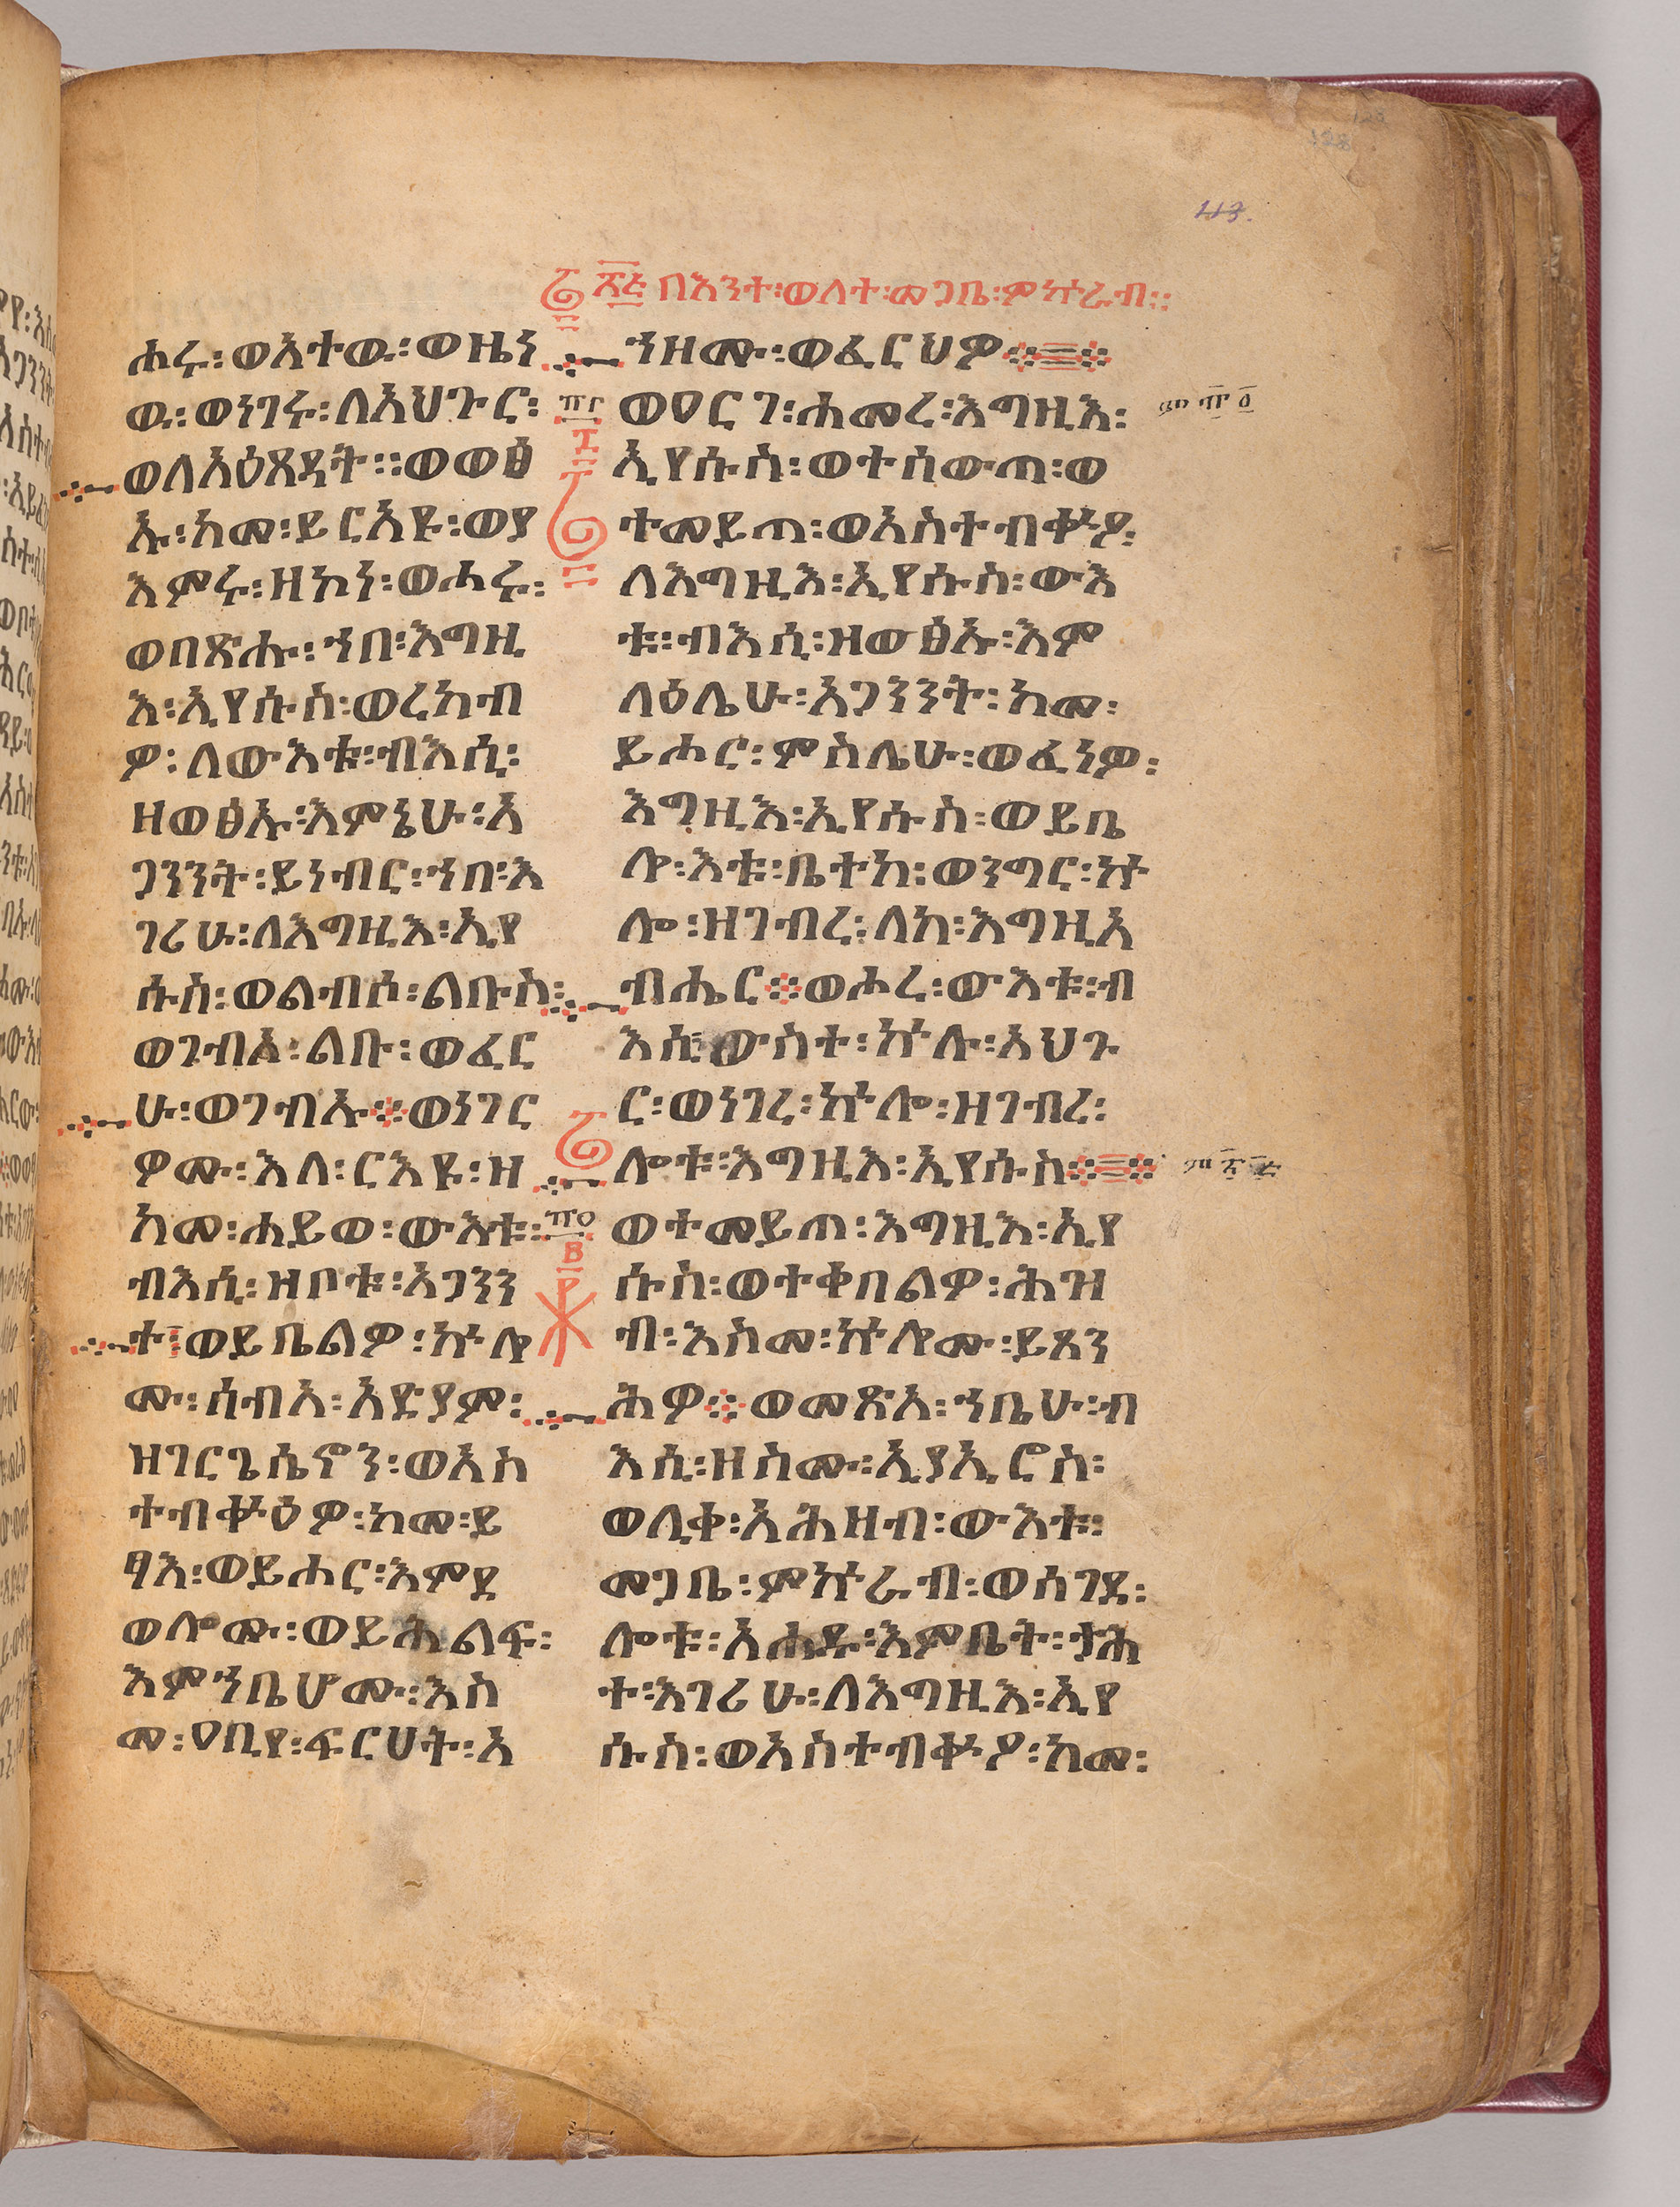 ፳፭ በእንተ፡ወለተ፡መጋቤ፡ምኵራብ።
ሖሩ፡ወአተዉ፡ወዜነ
ዉ፡ወነገሩ፡ለአህጉር፡
ወለአዕጸዳት።ወወፅ
ኡ፡ከመ፡ይርአዩ፡ወያ
እምሩ፡ዘኮነ፡ወሖሩ፡
ወበጽሑ፡ኀበ፡እግዚ
እ፡ኢየሱስ፡ወረከብ
ዎ፡ለውእቱ፡ብእሲ፡
ዘወፅኡ፡እምኔሁ፡አ
ጋንንት፡ይነብር፡ኀበ፡እ
ገሪሁ፡ለእግዚእ፡ኢየ
ሱስ፡ወልብሶ፡ልቡስ፡
ወጉብእ፡ልቡ፡ወፈር
ሁ፡ወገብኡ።ወነገር
ዎሙ፡እለ፡ርእዩ፡ዘ
ከመ፡ሐይወ፡ውእቱ፡
ብእሲ፡ዘቦቱ፡አጋንን
ት፡ወይቤልዎ፡ኵሎ
ሙ፡ሰብአ፡አድያም፡
ዝገርጌሴኖን፡ወአስ
ተብቍዕዎ፡ከመ፡ይ
ፃእ፡ወይሖር፡እምደ
ወሎሙ፡ወይሕልፍ፡
እምኀቤሆሙ፡እስ
መ፡ዐቢየ፡ፍርሀት፡አ
ኀዘሙ፡ወፈርህዎ።
ወዐርገ፡ሐመረ፡እግዚእ፡
ኢየሱስ፡ወተሰውጠ፡ወ
ተመይጠ፡ወአስተብቍዖ፡
ለእግዚእ፡ኢየሱስ፡ውእ
ቱ፡ብእሲ፡ዘወፅኡ፡እም
ላዕሌሁ፡አጋንንት፡ከመ፡
ይሖር፡ምስሌሁ፡ወፈነዎ፡
እግዚእ፡ኢየሱስ፡ወይቤ
ሎ፡እቱ፡ቤተከ፡ወንግር፡ኵ
ሎ፡ዘገብረ፡ለከ፡እግዚአ
ብሔር።ወሖረ፡ውእቱ፡ብ
እሲ፡ውስተ፡ኵሉ፡አህጉ
ር፡ወነገረ፡ኵሎ፡ዘገብረ፡
ሎቱ፡እግዚእ፡ኢየሱስ።
ወተመይጠ፡እግዚእ፡ኢየ
ሱስ፡ወተቀበልዎ፡ሕዝ
ብ፡እስመ፡ኵሎሙ፡ይጸን
ሕዎ።ወመጽአ፡ኀቤሁ፡ብ
እሲ፡ዘስሙ፡ኢያኢሮስ፡
ወሊቀ፡አሕዛብ፡ውእቱ፡
መጋቤ፡ምኵራብ፡ወሰገደ፡
ሎቱ፡አሐዱ፡እምቤት፡ታሕ
ተ፡እገሪሁ፡ለእግዚእ፡ኢየ
ሱስ፡ወአስተብቍዖ፡ከመ፡